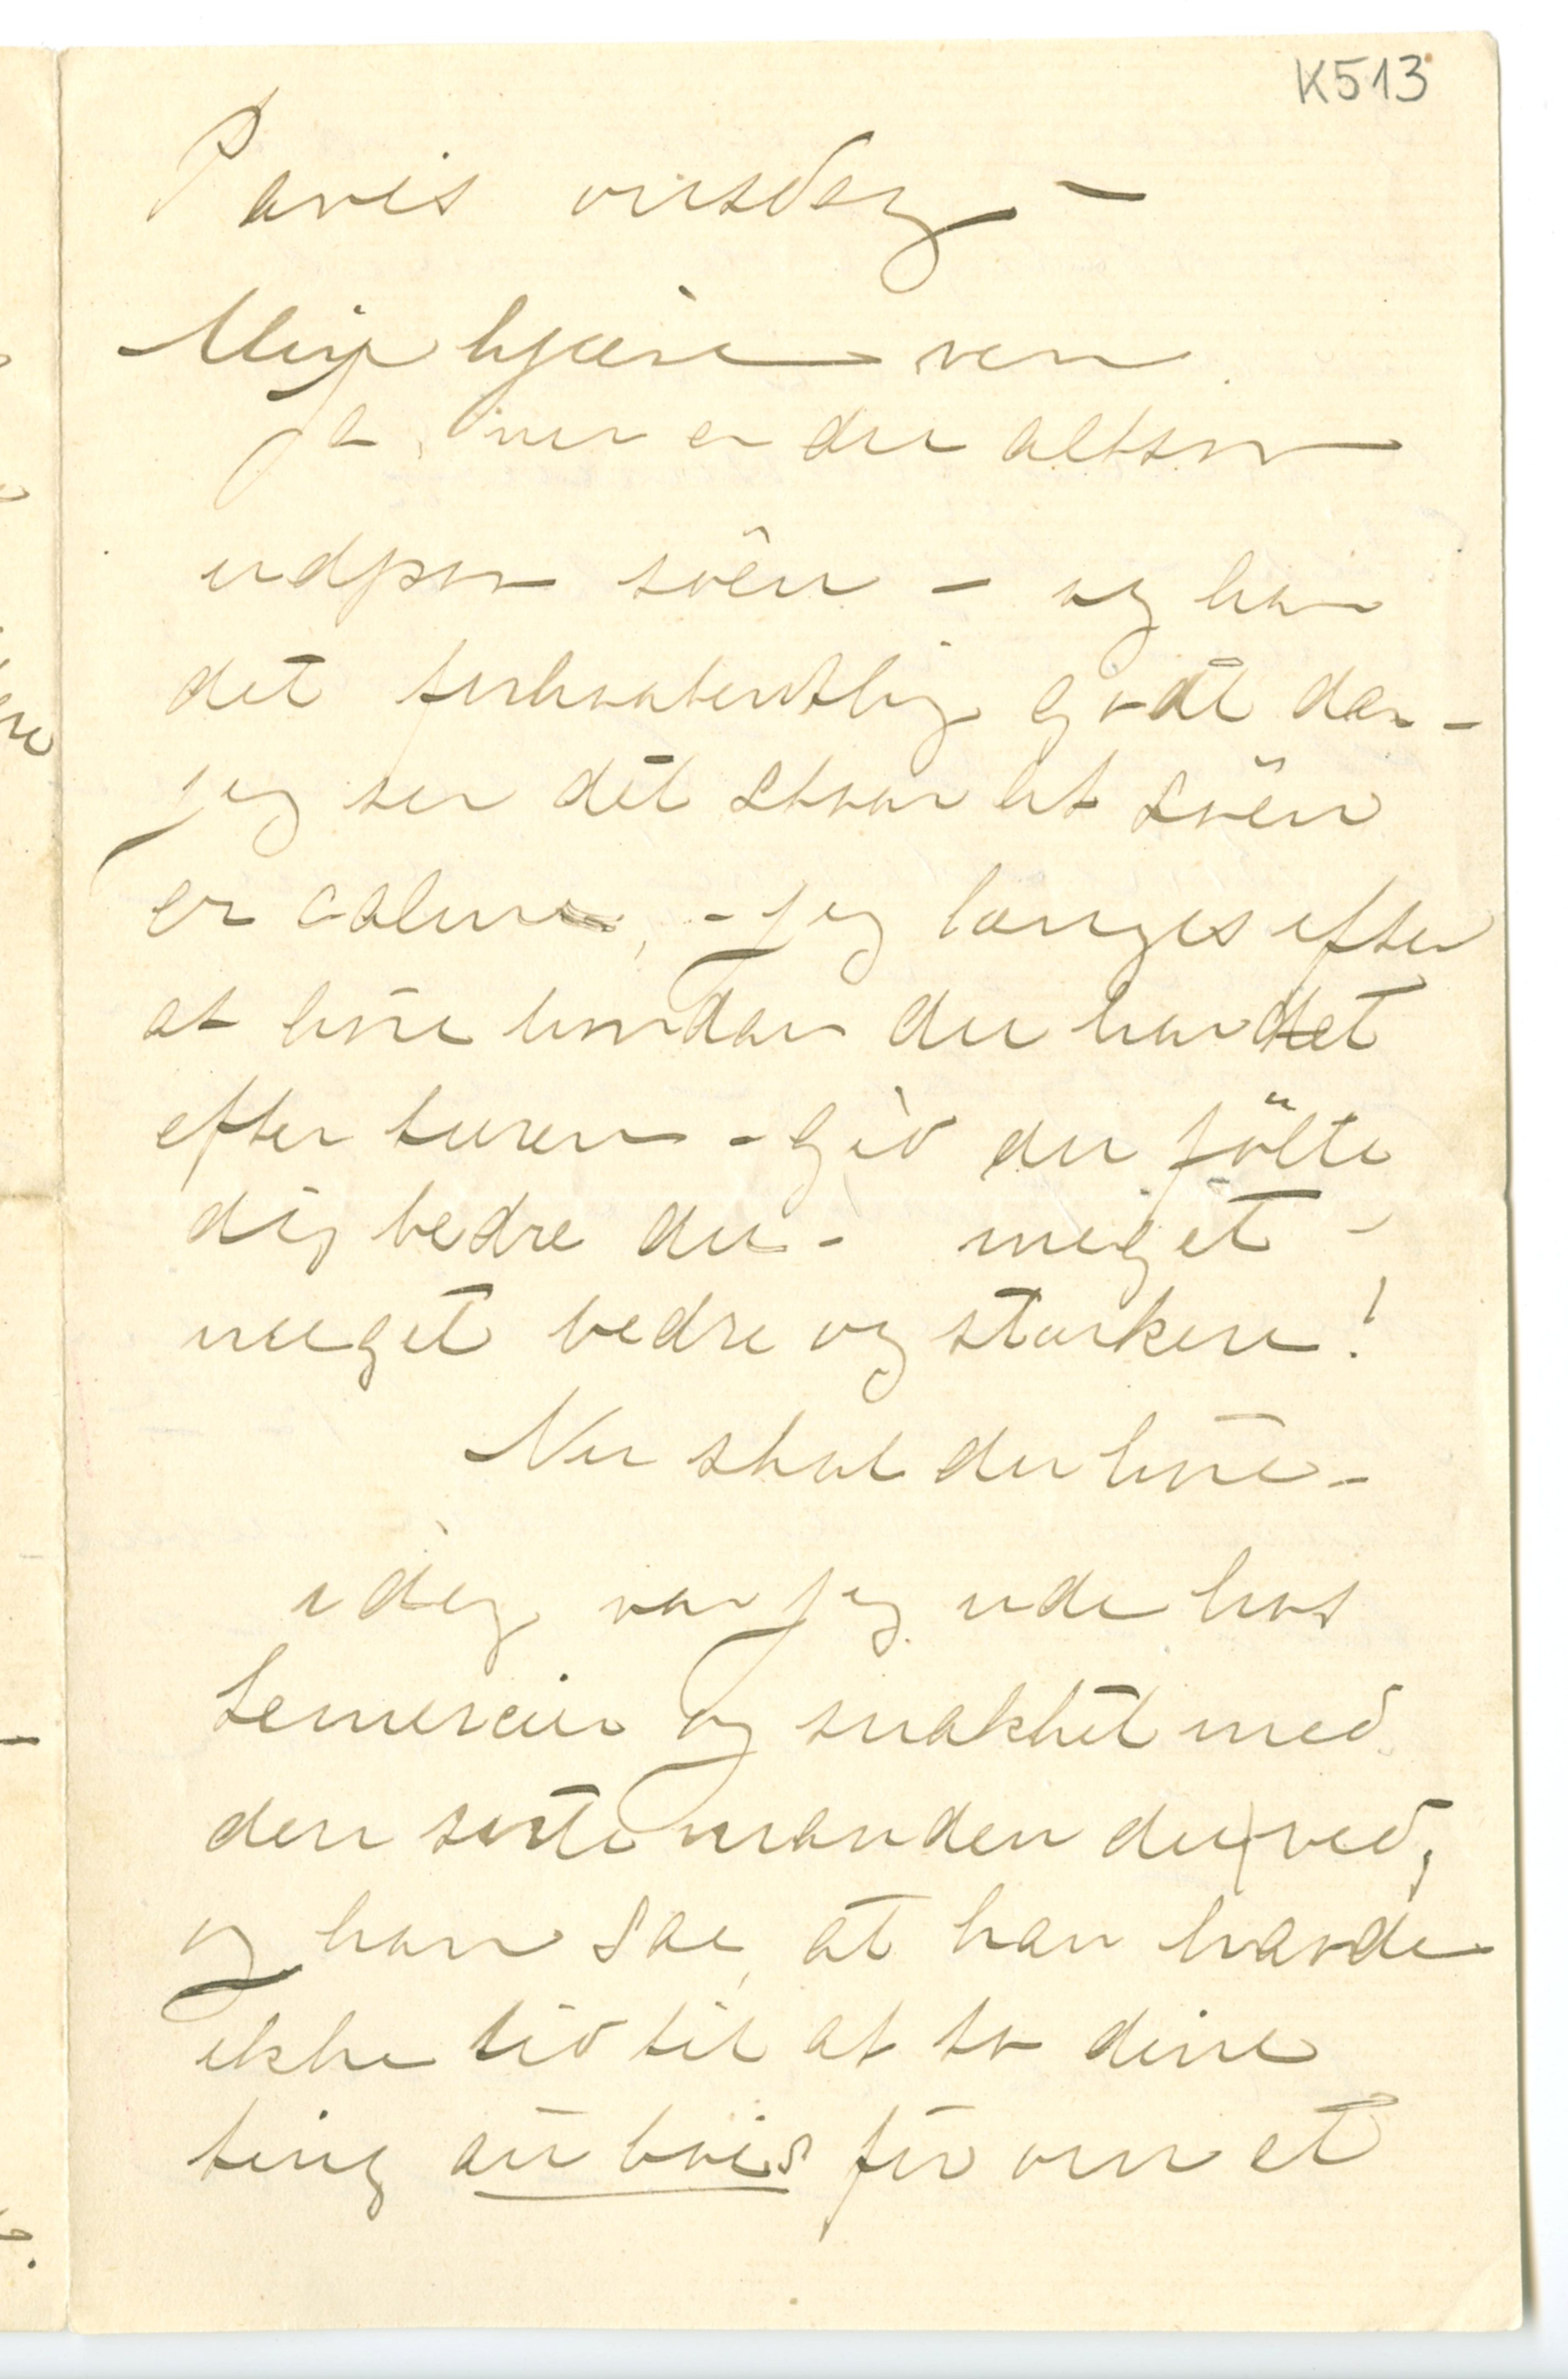 K513
Paris onsdag –
Min kjære ven.
Ja, nu er du altsaa
udpaa söen – og har
det forhaabentlig godt der –
jeg ser det staar at söen
er calme, – jeg længes efter
at höre hvordan du har det
efter turen – gid du fölte
dig bedre du – meget –
meget bedre og stærkere!
Nu skal du höre –
idag var jeg ude hos
Lemercier og snakket med
den sorte manden du ved,
og han sae, at han havde
ikke tid til at ta dine
ting au bois för om et